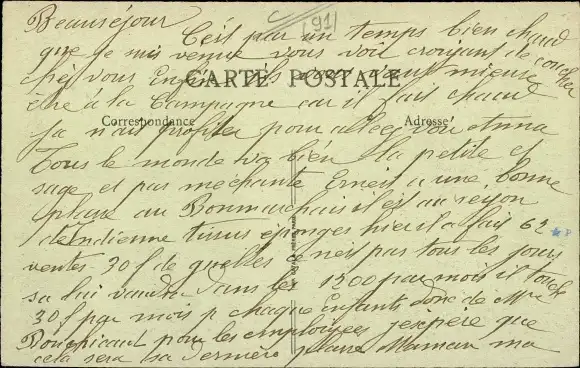 Beauséjour
91
C'est par un temps bien chaud
que je suis venue vous voir croyant de coucher
chez vous Enfin
être à la Campagne car il fait chaud
CARTE POSTALE
Correspondance
Adresse
sa nous profiter pour aller voir Anna
Tous le monde va bien la petite et
sage et pas méchante Ernest a une bonne
place au Bonmarchais il est au reyon
d'Indienne tissus éponges hier il a fait 62
ventes 30 f de guelles ce n'est pas tous les jours
sa lui vaudra dans les 1200 par mois il touche
30 f par mois p chaque Enfants donc de Mme
Boucicaut pour les employées j'espère que
cela sera sa dernière place Maman ma